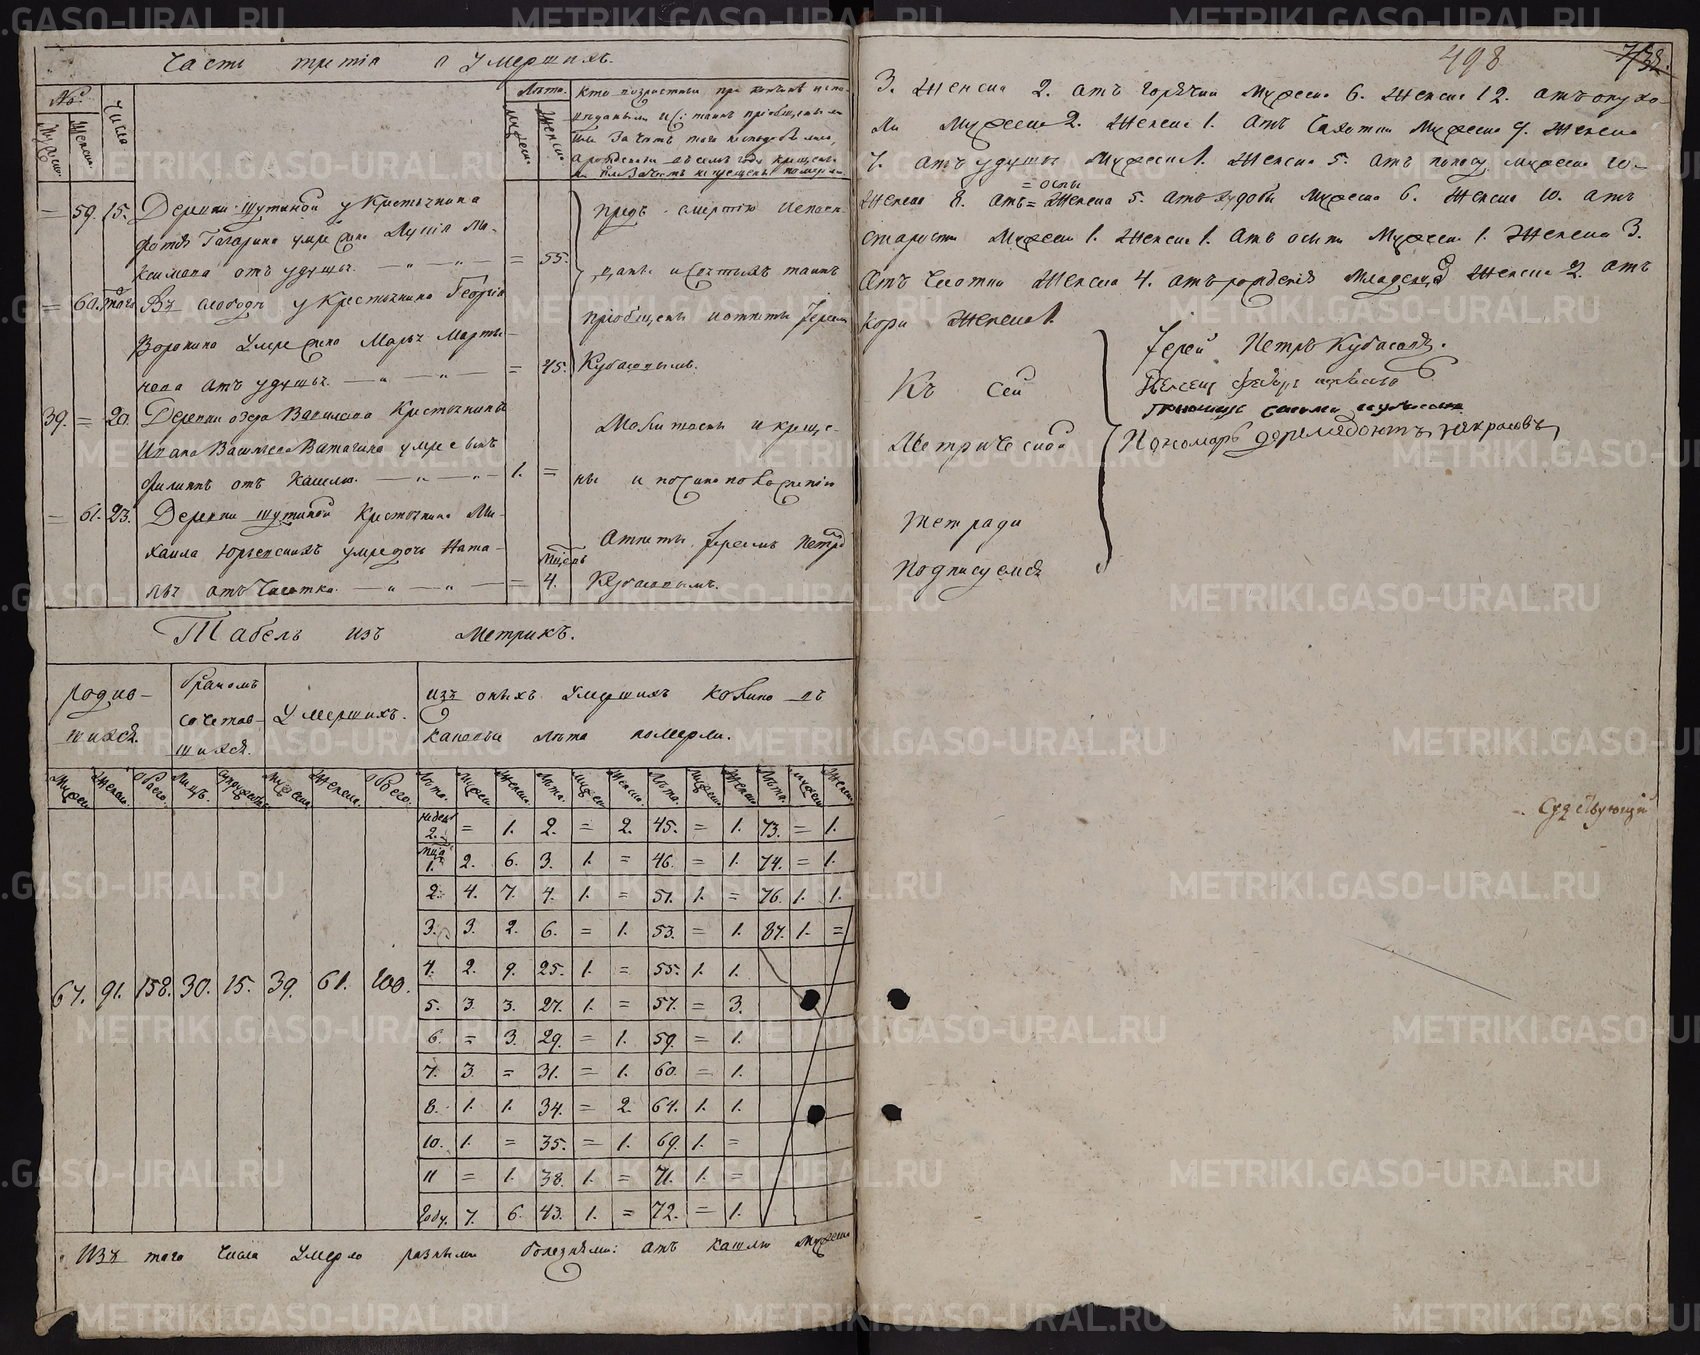 Часть третiя о Умершихъ.
№:
Мужес.
Женск.
Числа
Лѣта.
Мужеск.
Женск.
= 59. 15. Деревни Шутиной у Крестьянина
Фотiя Гагарина умре жена Лукiя Ма-
ксимова отъ удушья. = 55.
= 60. того Въ слободѣ у Крестьянина Георгiя
Воронина Умре жена Марѳа Марты-
нова отъ удушья. = 45.
предъ смертiю исповѣ-
даны и святыхъ таинъ
прiобщены и отпеты Iереемъ
Кубасовымъ.
39. = 20. Деревни озера Вавилова Крестьянина
Ивана Васильева Ватагина умре сынъ
Филиппъ отъ Кашлю. 1. =
= 61. 23. Деревни Шутиной Крестьянина Ми-
хаила Юрьевскихъ умре дочь Ната-
лья отъ Чахотки. = мцовъ 4.
Молитвены и креще-
ны
Отпеты Iереемъ Петромъ
Кубасовымъ.
Табель изъ метрикъ.
родив-
шихся.
бракомъ
сочетав-
шихся.
Умершихъ.
изъ оныхъ Умершихъ колико въ
каковы лѣта померли.
Мужеск. Женск. Обоего. Лицъ. Супружествъ. Мужеска. Женска. Обоего. Лѣта. Мужеск. Женск. Лѣта. Мужеск. Женск. Лѣта. Мужеск. Женск. Лѣта. Мужеск. Женск.
недель 2. = 1. 2. = 2. 45. = 1. 73. = 1.
мца 1. 2. 6. 3. 1. = 46. = 1. 74. = 1.
2. 4. 7. 4. 1. = 51. 1. = 76. 1. 1.
3. 3. 2. 6. = 1. 53. = 1. 87. 1. =
4. 2. 9. 25. 1. = 55. 1. 1.
67. 91. 158. 30. 15. 39. 61. 100.
5. 3. 3. 27. 1. = 57. = 3.
6. = 3. 29. = 1. 59. = 1.
7. 3. = 31. = 1. 60. = 1.
8. 1. 1. 34. = 2. 61. 1. 1.
10. 1. = 35. = 1. 69. 1. =
11 = 1. 38. 1. = 71. 1. =
Году. 7. 6. 43. 1. = 72. = 1.
Изъ того числа Умерло разными болезнями: отъ кашлю мужеска
498
3. Женска 2. отъ горячки Мужеска 6. Женска 12. отъ опухо-
ли Мужеска 2. Женска 1. отъ Чахотки Мужеска 9. Женска
7. отъ удушья Мужеска 1. Женска 5. отъ поносу мужеска 10-
= оспы
Женска 8. отъ = Женска 5. отъ худобы Мужеска 6. Женска 10. отъ
старости Мужеска 1. Женска 1. отъ оспы Мужеска 1. Женска 3.
отъ Чесотки Женска 4. отъ рожденiя младенца Женска 2. отъ
кори Женска 1.
Къ сей
Метрической
тетради
Подписуемся
Iерей Петръ Кубасовъ.
Пономарь
METRIKI.GASO-URAL.RU